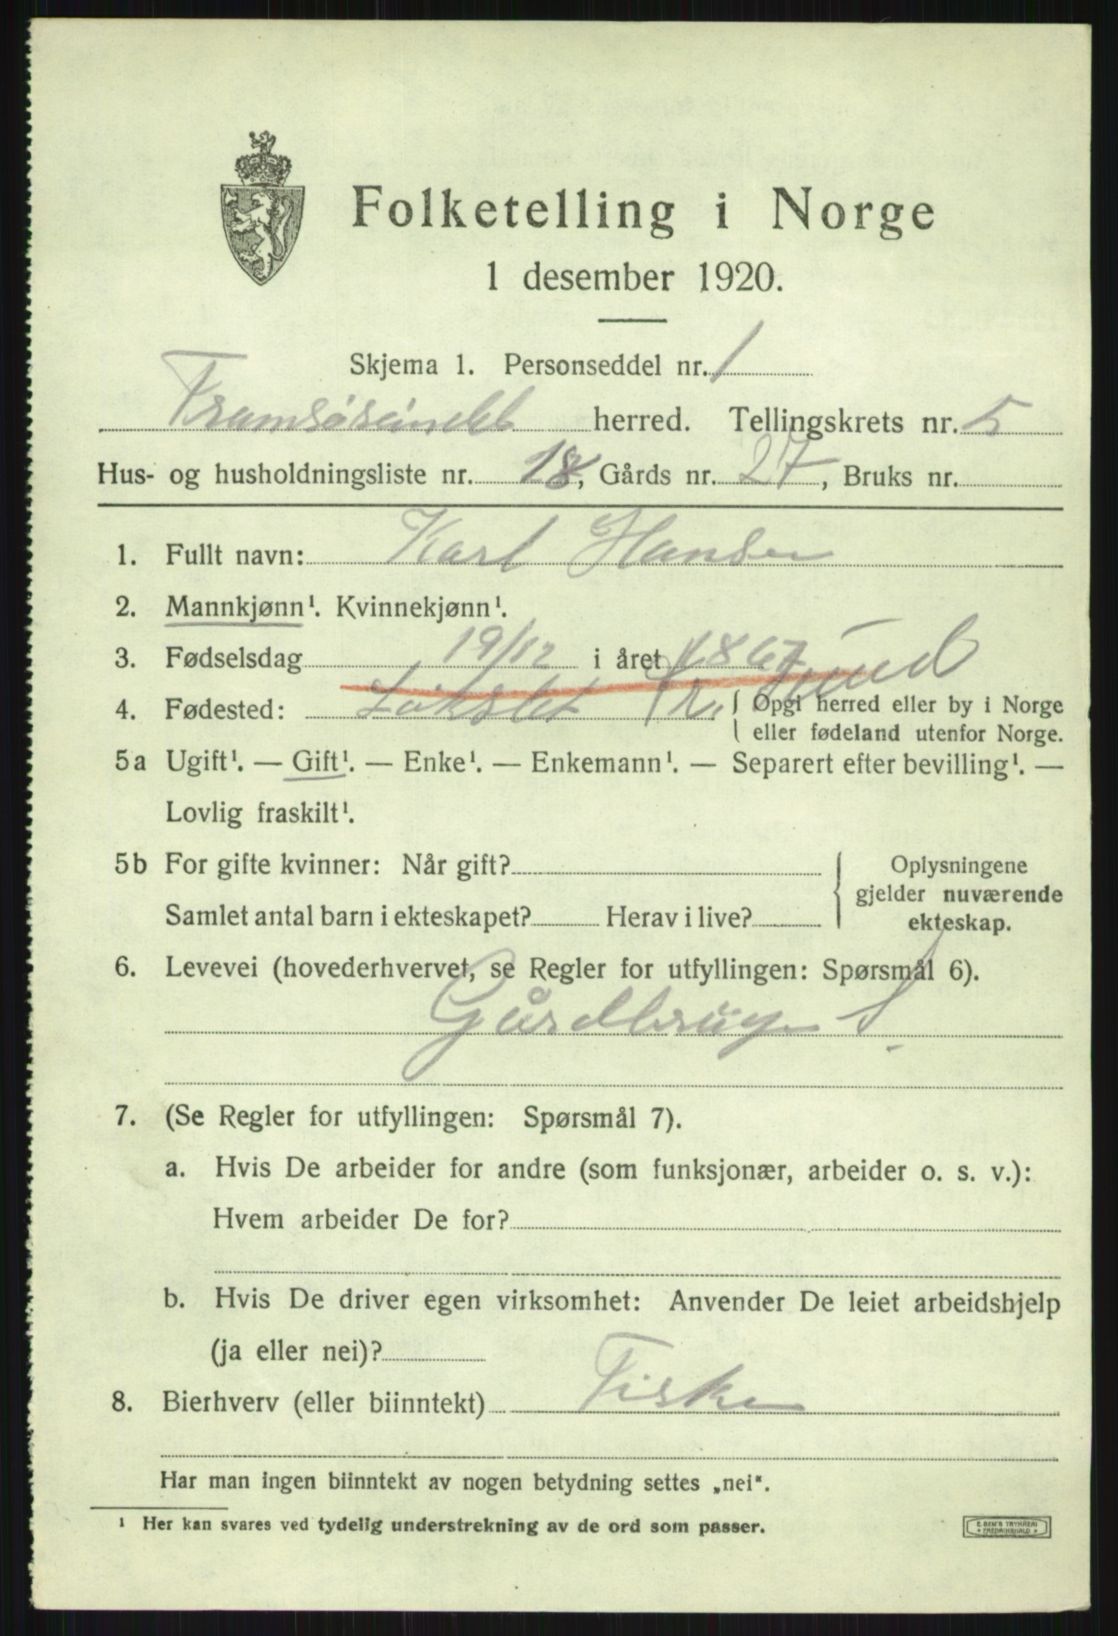 Folketelling i Norge
1 desember 1920.
Skjema 1. Personseddel nr. 1
Tromsøsundet herred. Tellingskrets nr. 5
Hus- og husholdningsliste nr. 18, Gårds nr. 27, Bruks nr.
1. Fullt navn: Karl Hansen
2. Mannkjønn¹. Kvinnekjønn¹.
3. Fødselsdag 19/12 i året 1867
4. Fødested: Tr. sund { Opgi herred eller by i Norge
eller fødeland utenfor Norge.
5a Ugift¹. — Gift¹. — Enke¹. — Enkemann¹. — Separert efter bevilling¹. —
Lovlig fraskilt¹.
5b For gifte kvinner: Når gift? { Oplysningene
gjelder nuværende
Samlet antal barn i ekteskapet? Herav i live? ekteskap.
6. Levevei (hovederhvervet, se Regler for utfyllingen: Spørsmål 6).
Gårdbruger S.
7. (Se Regler for utfyllingen: Spørsmål 7).
a. Hvis De arbeider for andre (som funksjonær, arbeider o. s. v.):
Hvem arbeider De for?
b. Hvis De driver egen virksomhet: Anvender De leiet arbeidshjelp
(ja eller nei)?
8. Bierhverv (eller biinntekt) Fisker
Har man ingen biinntekt av nogen betydning settes „nei".
¹ Her kan svares ved tydelig understrekning av de ord som passer.